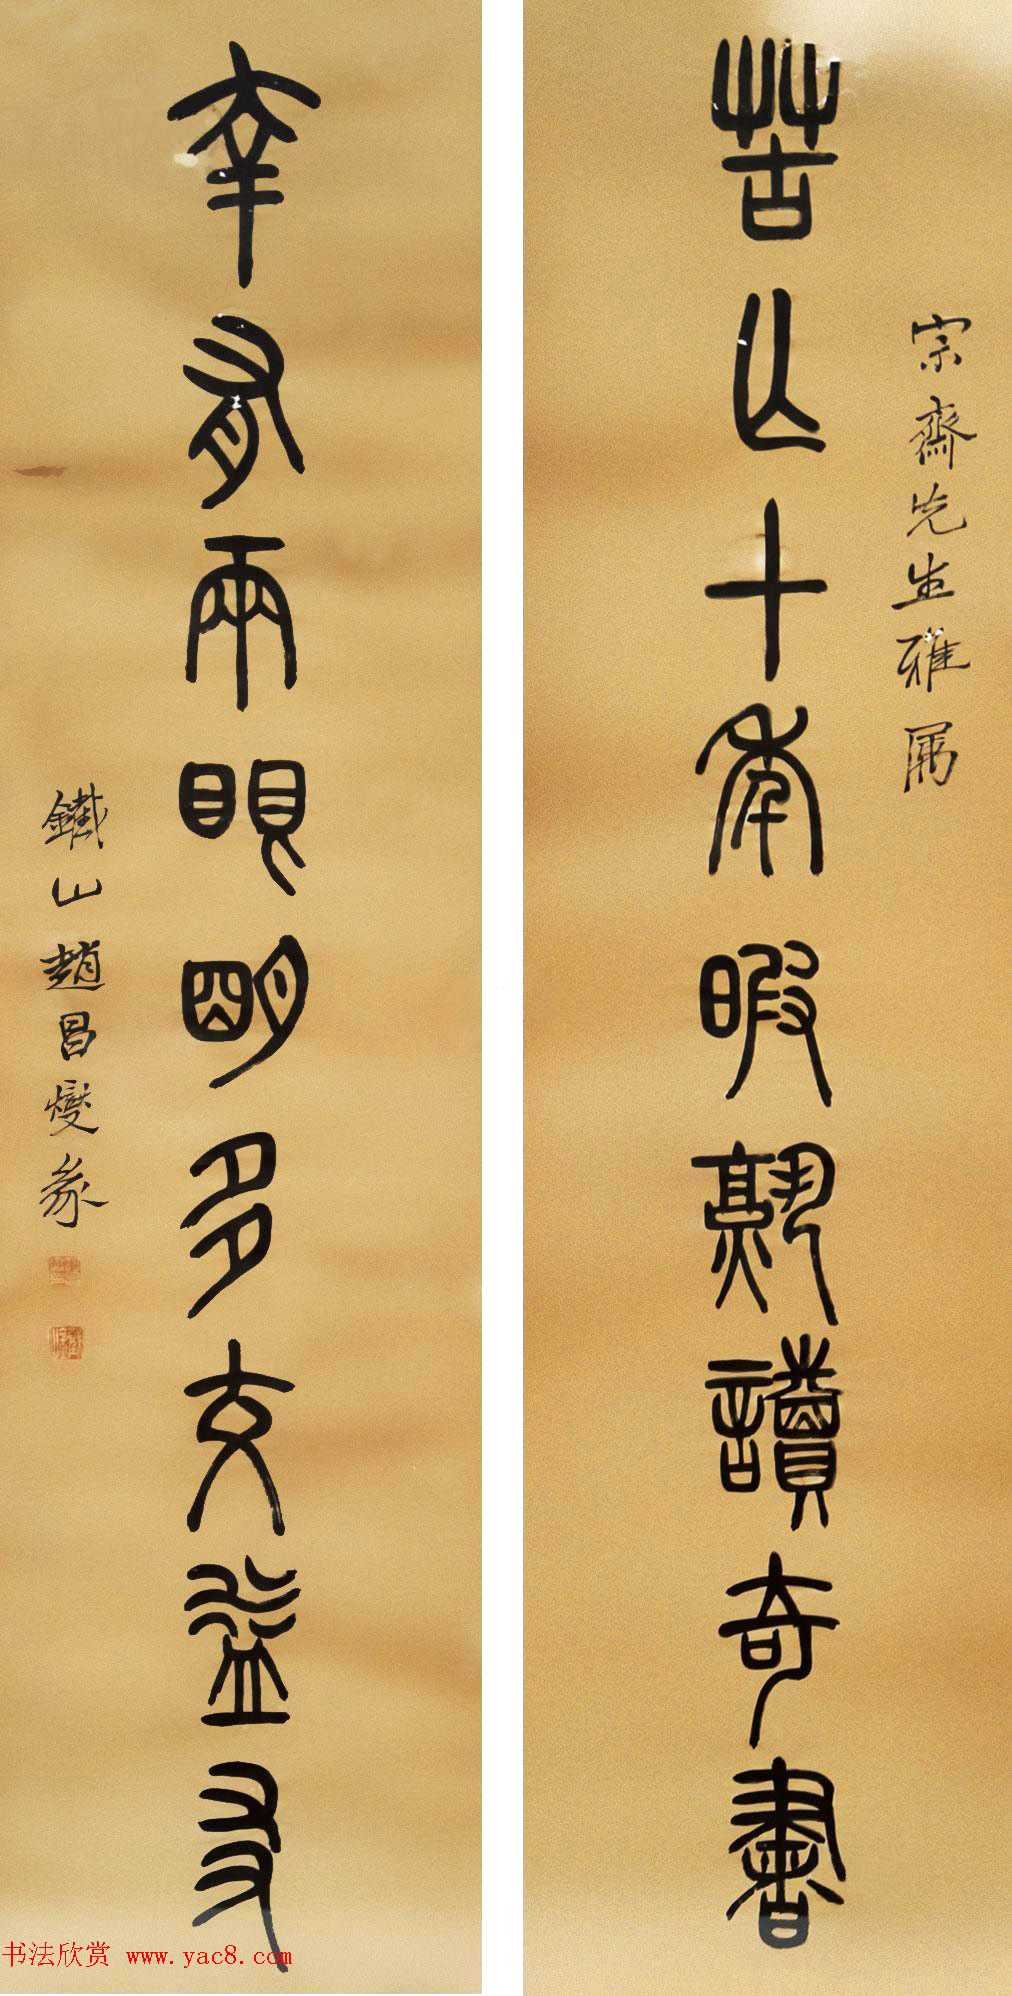 宗齋先生雅属
苦亡十年暇熟讀奇書
幸有兩眼明多交益友
鐵山趙昌燮篆
书法欣赏 www.yac8.com